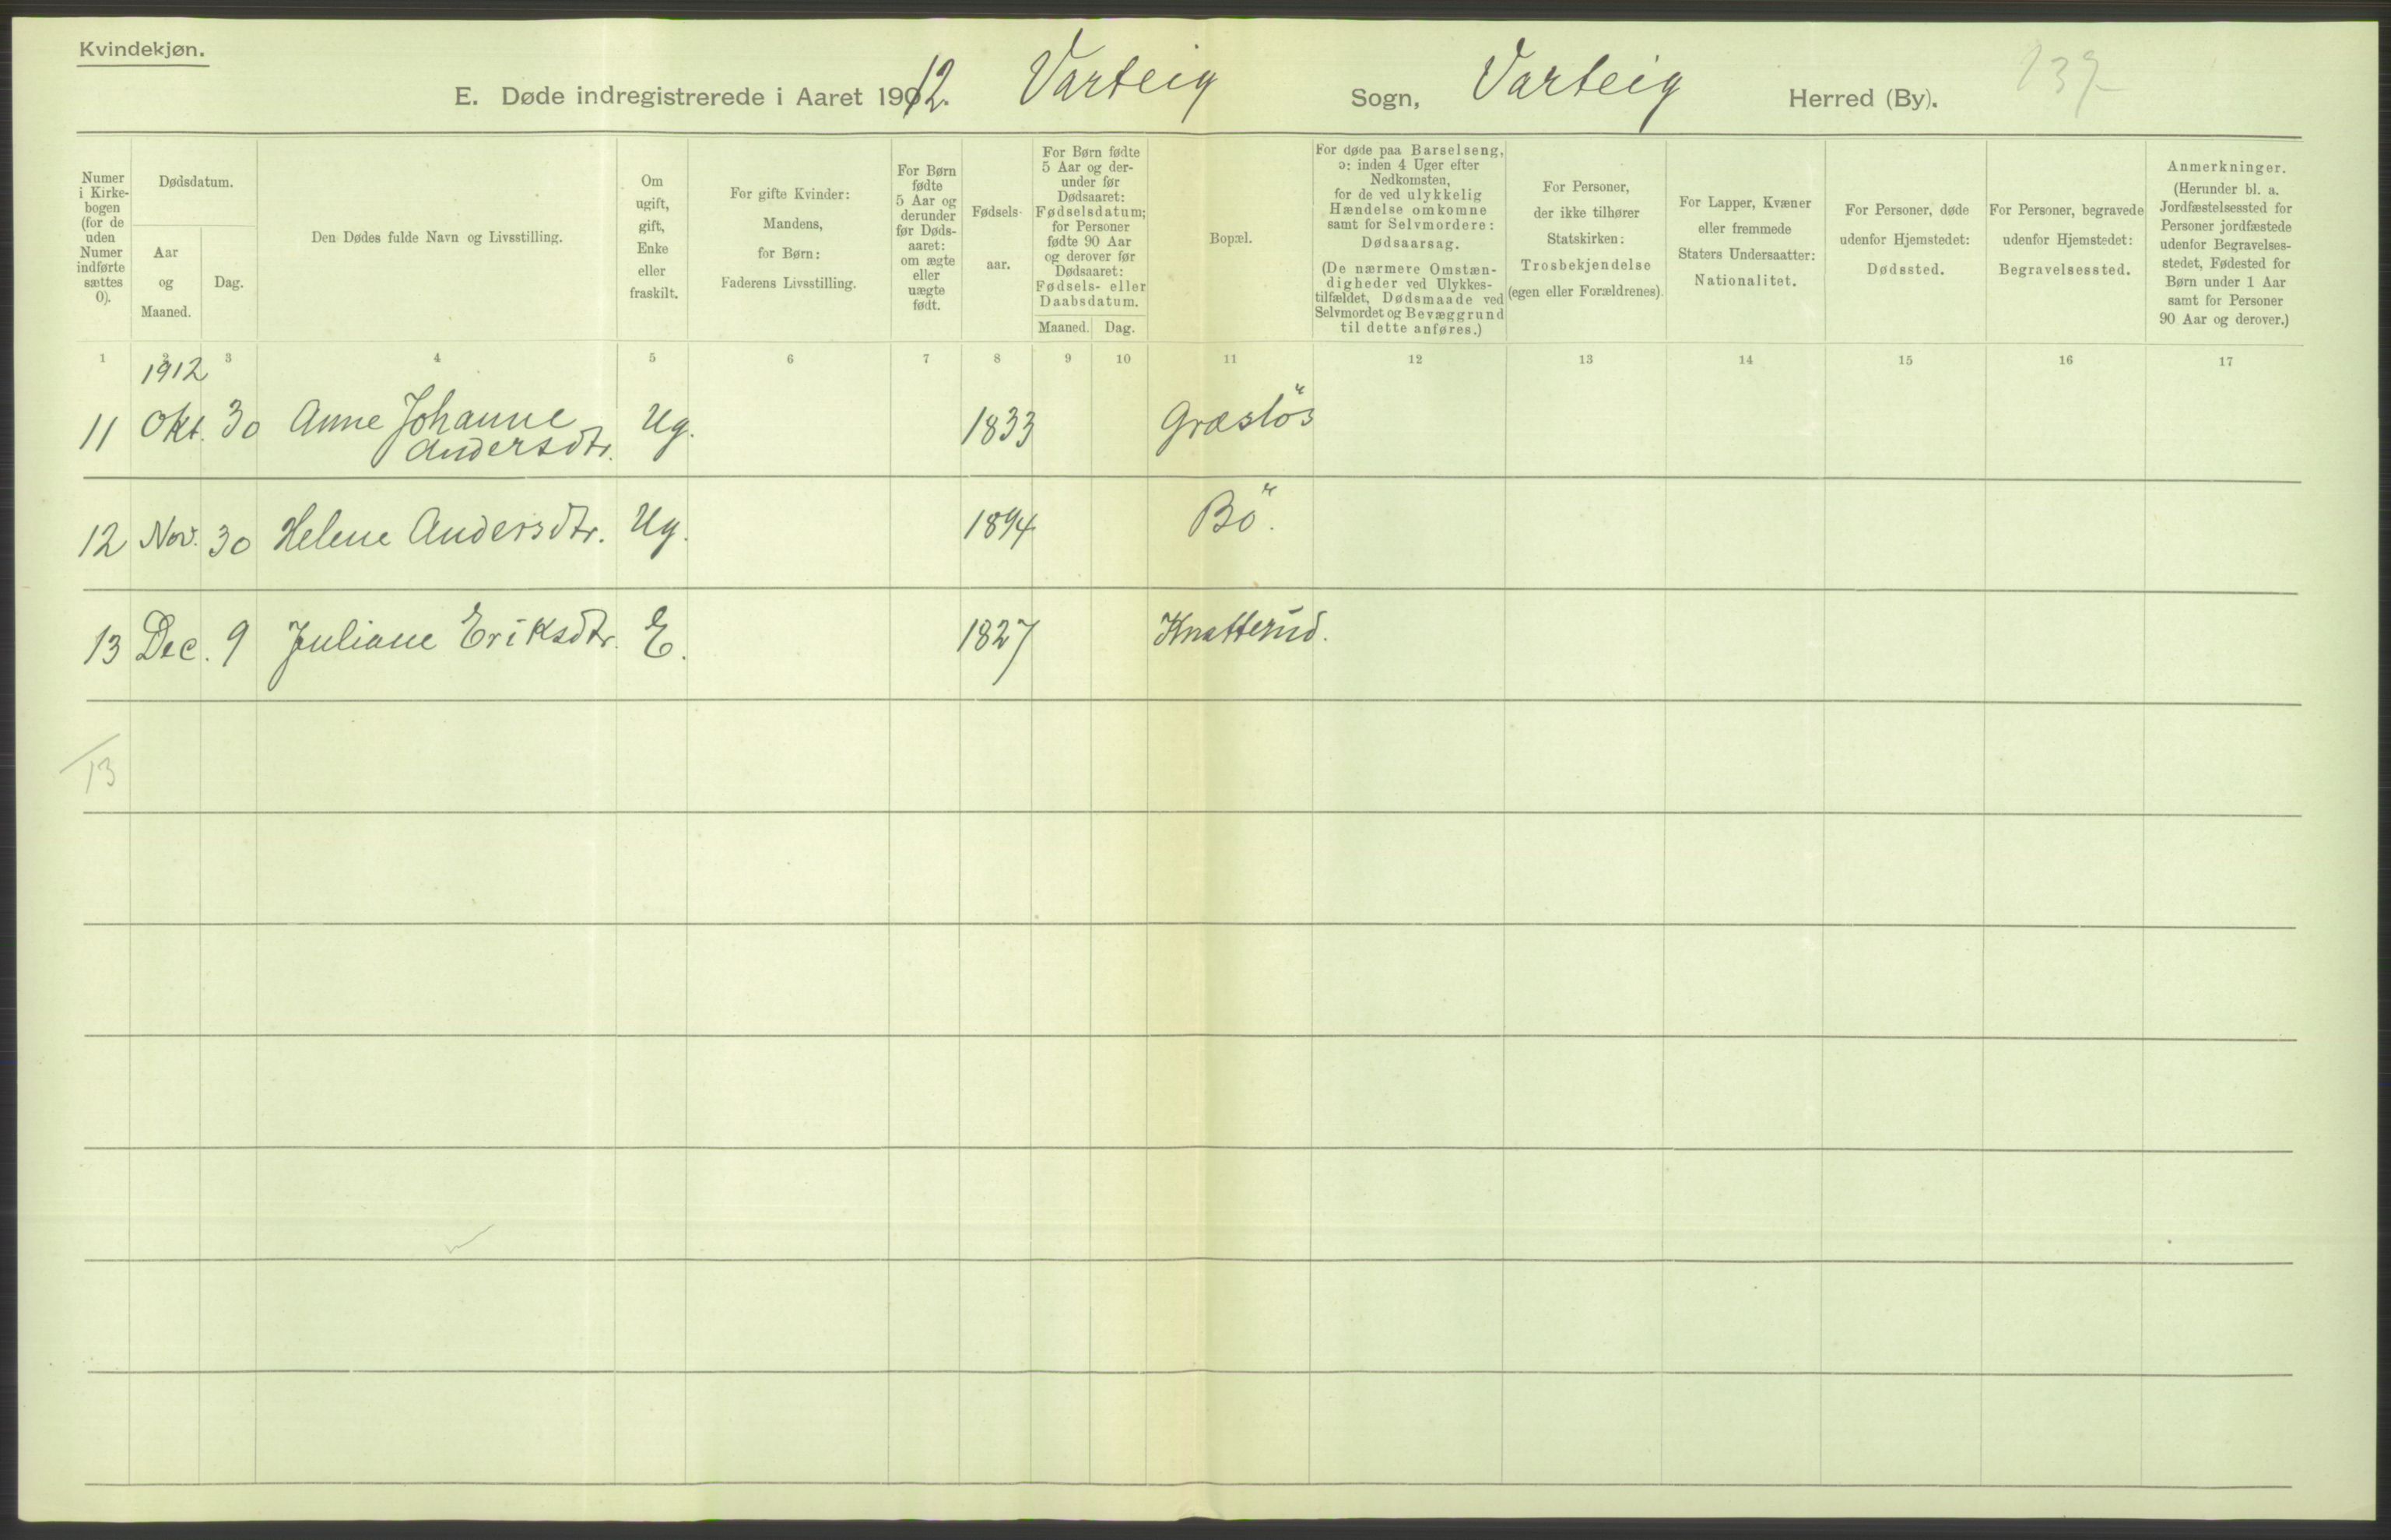 Kvindekjøn.
E. Døde indregistrerede i Aaret 1912. Varteig Sogn, Varteig Herred (By). 137
Numer i Kirke-bogen (for de uden Numer indførte sættes 0).
Dødsdatum.
Aar og Maaned.
Dag.
Den Dødes fulde Navn og Livsstilling.
Om ugift, gift, Enke eller fraskilt.
For gifte Kvinder: Mandens, for Børn: Faderens Livsstilling.
For Børn fødte 5 Aar og derunder før Døds-aaret: om ægte eller uægte født.
Fødsels-aar.
For Børn fødte 5 Aar og der-under før Dødsaaret: Fødselsdatum; for Personer fødte 90 Aar og derover før Dødsaaret: Fødsels- eller Daabsdatum.
Maaned. Dag.
Bopæl.
For døde paa Barselseng, ɔ: inden 4 Uger efter Nedkomsten, for de ved ulykkelig Hændelse omkomne samt for Selvmordere: Dødsaarsag.
(De nærmere Omstæn-digheder ved Ulykkes-tilfældet, Dødsmaade ved Selvmordet og Bevæggrund til dette anføres.)
For Personer, der ikke tilhører Statskirken: Trosbekjendelse (egen eller Forældrenes).
For Lapper, Kvæner eller fremmede Staters Undersaatter: Nationalitet.
For Personer, døde udenfor Hjemstedet: Dødssted.
For Personer, begravede udenfor Hjemstedet: Begravelsessted.
Anmerkninger.
(Herunder bl. a. Jordfæstelsessted for Personer jordfæstede udenfor Begravelses-stedet, Fødested for Børn under 1 Aar samt for Personer 90 Aar og derover.)
1 2 3 4 5 6 7 8 9 10 11 12 13 14 15 16 17
1912
11 Okt. 30 Anne Johanne Andersdtr. Ug. 1833 Græslös
12 Nov. 30 Helene Andersdtr. Ug. 1894 Bö.
13 Dec. 9 Juliane Eriksdtr. E. 1827 Knatterud.
13